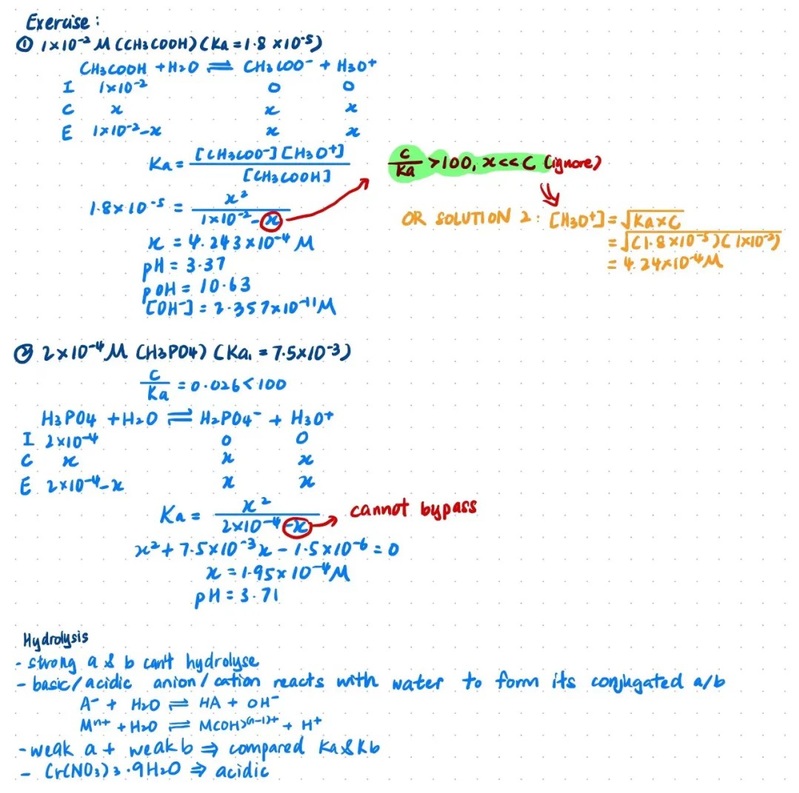 Exercise :
① 1×10⁻² M (CH₃COOH) (Ka = 1.8 ×10⁻⁵)
CH₃COOH + H₂O ⇌ CH₃COO⁻ + H₃O⁺
I 1×10⁻² 0 0
C x x x
E 1×10⁻²-x x x
Ka = [CH₃COO⁻][H₃O⁺] / [CH₃COOH]
C/Ka > 100, x << C (ignore)
1.8×10⁻⁵ = x² / 1×10⁻²-x
OR SOLUTION 2 : [H₃O⁺] = √Ka×C
= √(1.8×10⁻⁵)(1×10⁻²)
= 4.24×10⁻⁴M
x = 4.243×10⁻⁴ M
pH = 3.37
pOH = 10.63
[OH⁻] = 2.357×10⁻¹¹M
② 2×10⁻⁴ M (H₃PO₄) (Ka₁ = 7.5×10⁻³)
C/Ka = 0.026 < 100
H₃PO₄ + H₂O ⇌ H₂PO₄⁻ + H₃O⁺
I 2×10⁻⁴ 0 0
C x x x
E 2×10⁻⁴-x x x
Ka = x² / 2×10⁻⁴-x → cannot bypass
x² + 7.5×10⁻³x - 1.5×10⁻⁶ = 0
x = 1.95×10⁻⁴M
pH = 3.71
Hydrolysis
- strong a & b can't hydrolyse
- basic/acidic anion/cation reacts with water to form its conjugated a/b
A⁻ + H₂O ⇌ HA + OH⁻
Mⁿ⁺ + H₂O ⇌ M(OH)⁽ⁿ⁻¹⁾⁺ + H⁺
- weak a + weak b ⇒ compared Ka & Kb
- Cr(NO₃)₃ · 9H₂O ⇒ acidic